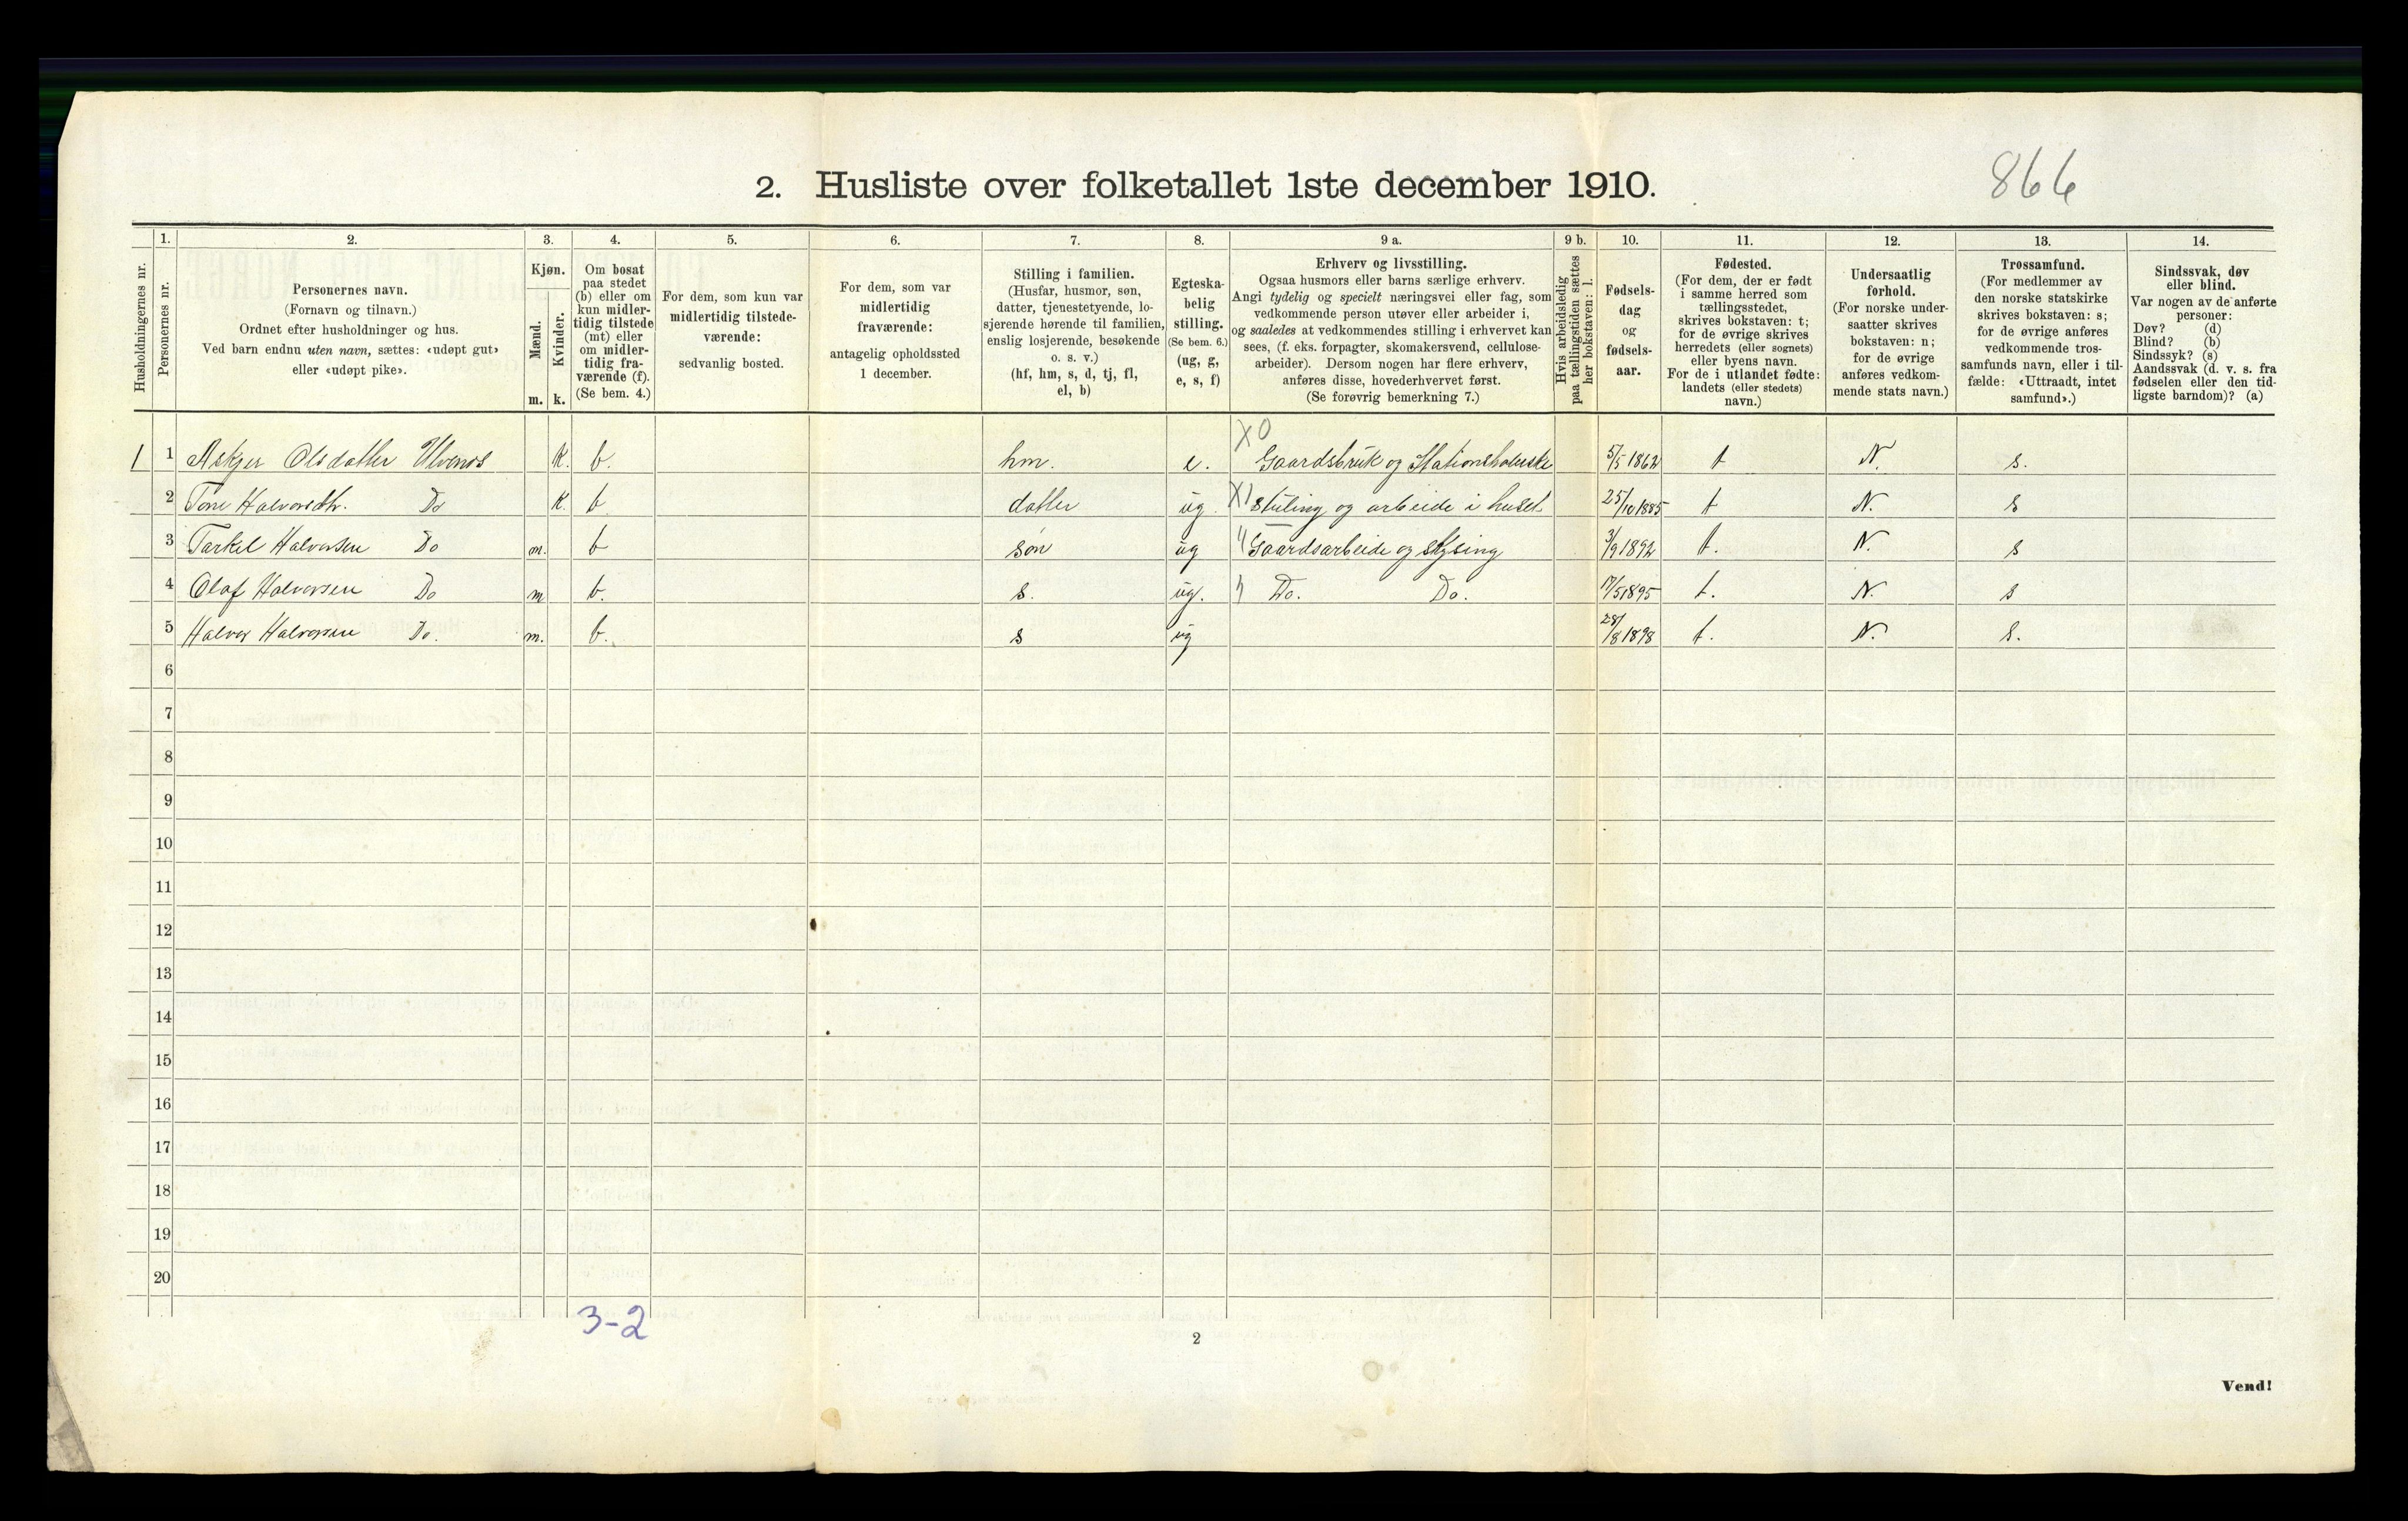 2. Husliste over folketallet 1ste december 1910.
866
Husholdningernes nr.
1.
Personernes nr.
2.
Personernes navn.
(Fornavn og tilnavn.)
Ordnet efter husholdninger og hus.
Ved barn endnu uten navn, sættes: «udøpt gut»
eller «udøpt pike».
3.
Kjøn.
Mænd.
Kvinder.
m.
k.
4.
Om bosat
paa stedet
(b) eller om
kun midler-
tidig tilstede
(mt) eller
om midler-
tidig fra-
værende (f).
(Se bem. 4.)
5.
For dem, som kun var
midlertidig tilstede-
værende:
sedvanlig bosted.
6.
For dem, som var
midlertidig
fraværende:
antagelig opholdssted
1 december.
7.
Stilling i familien.
(Husfar, husmor, søn,
datter, tjenestetyende, lo-
sjerende hørende til familien,
enslig losjerende, besøkende
o. s. v.)
(hf, hm, s, d, tj, fl,
el, b)
8.
Egteska-
belig
stilling.
(Se bem. 6.)
(ug, g,
e, s, f)
9 a.
Erhverv og livsstilling.
Ogsaa husmors eller barns særlige erhverv.
Angi tydelig og specielt næringsvei eller fag, som
vedkommende person utøver eller arbeider i,
og saaledes at vedkommendes stilling i erhvervet kan
sees, (f. eks. forpagter, skomakersvend, cellulose-
arbeider). Dersom nogen har flere erhverv,
anføres disse, hovederhvervet først.
(Se forøvrig bemerkning 7.)
9 b.
Hvis arbeidsledig
paa tællingstiden sættes
her bokstaven: l.
10.
Fødsels-
dag
og
fødsels-
aar.
11.
Fødested.
(For dem, der er født
i samme herred som
tællingsstedet,
skrives bokstaven: t;
for de øvrige skrives
herredets (eller sognets)
eller byens navn.
For de i utlandet fødte:
landets (eller stedets)
navn.)
12.
Undersaatlig
forhold.
(For norske under-
saatter skrives
bokstaven: n;
for de øvrige
anføres vedkom-
mende stats navn.)
13.
Trossamfund.
(For medlemmer av
den norske statskirke
skrives bokstaven: s;
for de øvrige anføres
vedkommende tros-
samfunds navn, eller i til-
fælde: «Uttraadt, intet
samfund».)
14.
Sindssvak, døv
eller blind.
Var nogen av de anførte
personer:
Døv? (d)
Blind? (b)
Sindssyk? (s)
Aandssvak (d. v. s. fra
fødselen eller den tid-
ligste barndom)? (a)
X0
1 1 Askjer Olsdatter Ulvenes K. b. hm. e. Gaardsbruk og Stationsholderske 5/5 1862 t N. s.
2 Tone Halvorsdtr. Do K. b datter ug. X1 stuling og arbeide i huset 25/10 1885 t N. s
3 Tarkel Halvorsen Do m. b søn ug Gaardsarbeide og skysing 3/9 1892 t. N. s
4 Olaf Halvorsen Do m b. s. ug. Do. Do. 17/5 1895 t. N. s
5 Halvor Halvorsen Do. m. b. s ug 28/8 1898 t. N. s.
6
7
8
9
10
11
12
13
14
15
16
17
18
19
20
3-2
2
Vend!